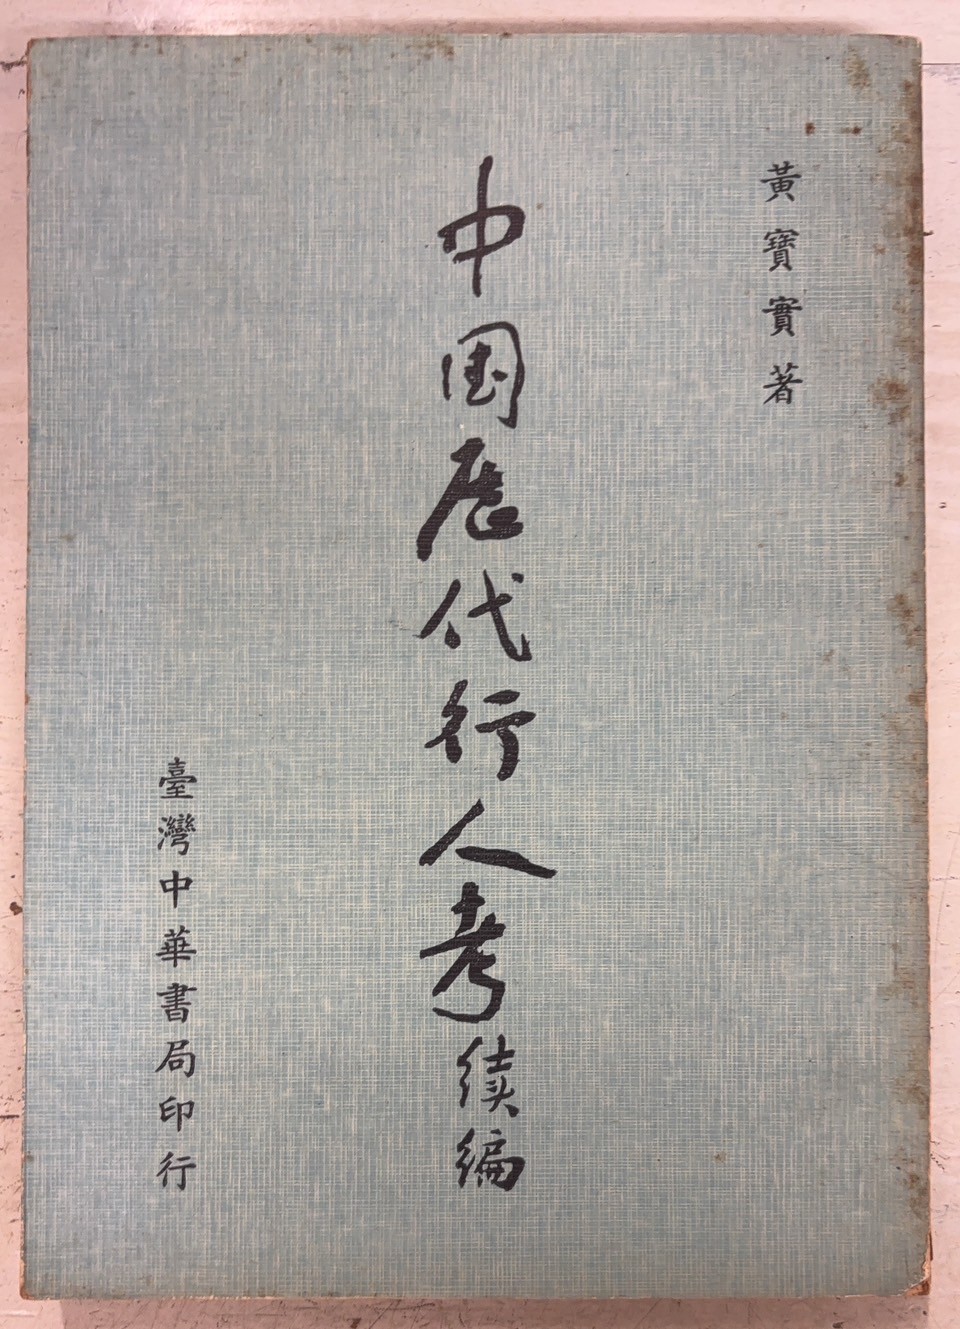 黃寶實著
中国歷代行人考续编
臺灣中華書局印行